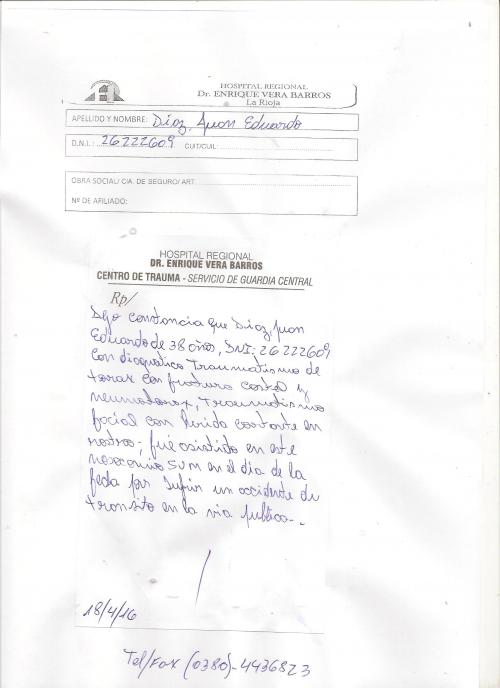 HOSPITAL REGIONAL
Dr. ENRIQUE VERA BARROS
La Rioja
APELLIDO Y NOMBRE: Diaz, Juan Eduardo
D.N.I.: 26222609 CUIT/CUIL:
OBRA SOCIAL/ CIA. DE SEGURO/ ART
Nº DE AFILIADO:
HOSPITAL REGIONAL
DR. ENRIQUE VERA BARROS
CENTRO DE TRAUMA - SERVICIO DE GUARDIA CENTRAL
Rp/
Dejo constancia que Diaz, Juan
Eduardo de 38 años, DNI: 26222609
con diagnostico Traumatismo de
torax con fractura costal y
neumotorax, Traumatismo
facial con herida cortante en
rostro; fue asistido en este
nosocomio en el dia de la
fecha por sufrir un accidente de
transito en la via publica.-
18/4/16
Tel/Fax (0380)-4436823